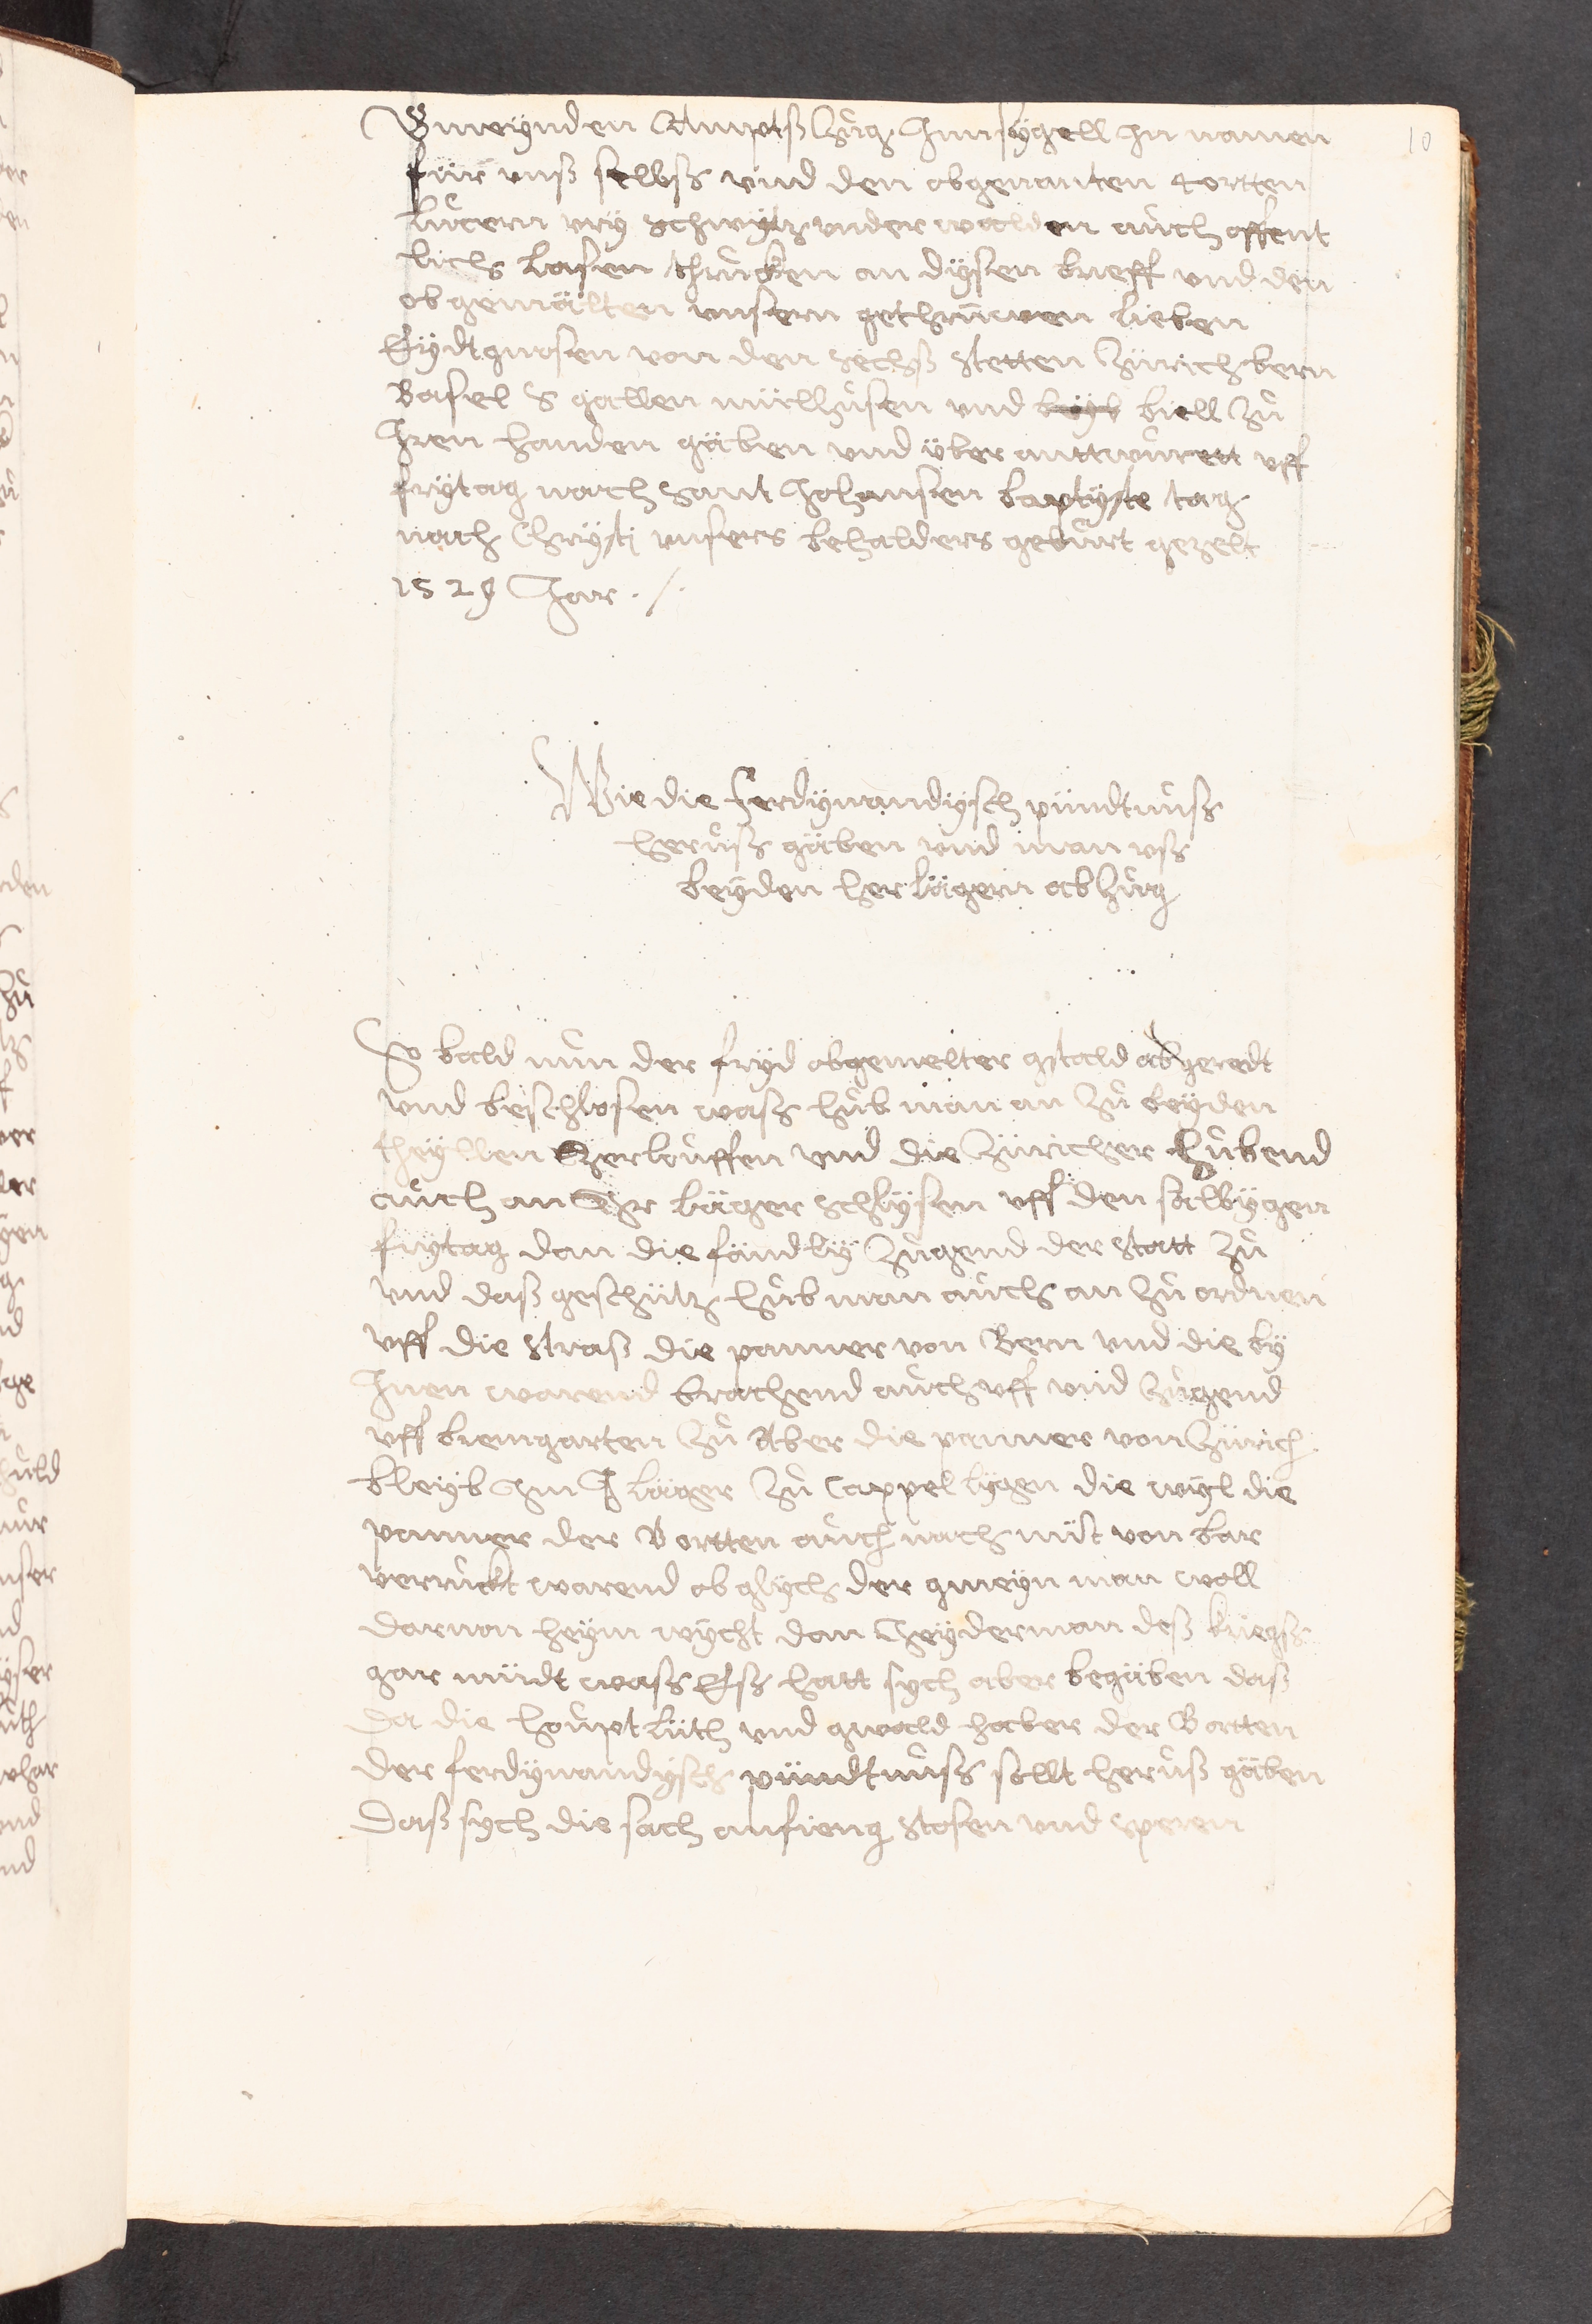 10
Gmeÿnden Amptß Zug Jnnsÿgell jn namen
für unß selbß und den obgenanten 4 ortten
Lucern vrÿ Schwÿtz underwalden auch offent
lich lasen thrucken an dÿsen brieff und den
obgemälten unsern gethrüwen lieben
Eÿdtgnosen von den sechß stetten Zürich bern
Basel S gallen müllhusen und biell zů
Jren handen gäben und über anttwurtt uff
frÿtag nach Sant Johansen baptÿste tag
nach Chrÿstj unsers behalders geburt gezelt
1529 Jar ./.
Wie die ferdÿnandÿsch pündtnuß
heruß gäben und man uß
beÿden herlägern abzug
So bald nun der frÿd obgemelter gstald abgeredt
und beschlosen waß hub man an zů beÿden
theÿllen Zerlouffen und die Züricher hubend
auch an Jr läger schlÿsen uff den sälbÿgen
frÿtag dan die fändlÿ zugend der statt zů
und daß geschütz hub man auch an zů ordnen
uff die straß die panner von Bern und die bÿ
Jnen warend brachend auch uff und zugend
uff bremgarten zů Aber die panner von Zürich
bleÿb Jm läger zů Cappel lÿgen die wÿl die
panner der 5 ortten auch nach nüt von bar
verruckt warend ob glÿch der gmeÿn man woll
darvon heÿm wÿcht dan Jeÿderman deß kriegß
gar müdt waß Eß hatt sÿch aber begäben daß
Da die houptlüth und gwald haber der 5 ortten
der ferdÿnandÿsch pündtnuß sollt heruß gäben
Daß sÿch die sach anfieng stosen und speren